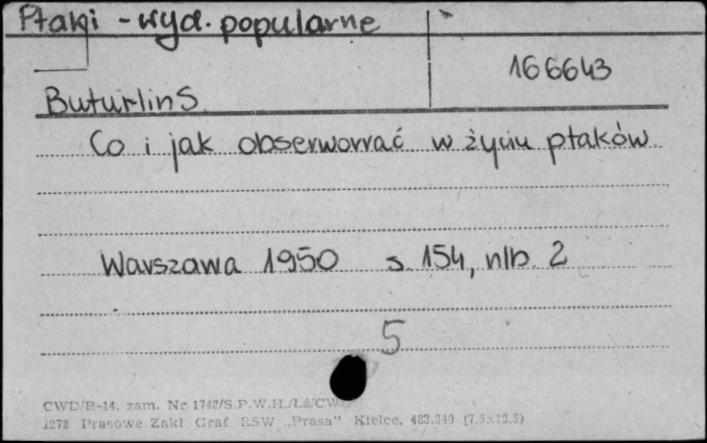 Ptaki - wyd. popularne
166643
Buturlin S.
Co i jak obserwować w życiu ptaków
Warszawa 1950 s. 154, nlb. 2
5
CWD/B-14. zam. Nr 1742/S.P.W.H./Łź/CWD
1272 Prasowe Zakł Graf RSW „Prasa" Kielce, 483.340 (7,5x12,5)